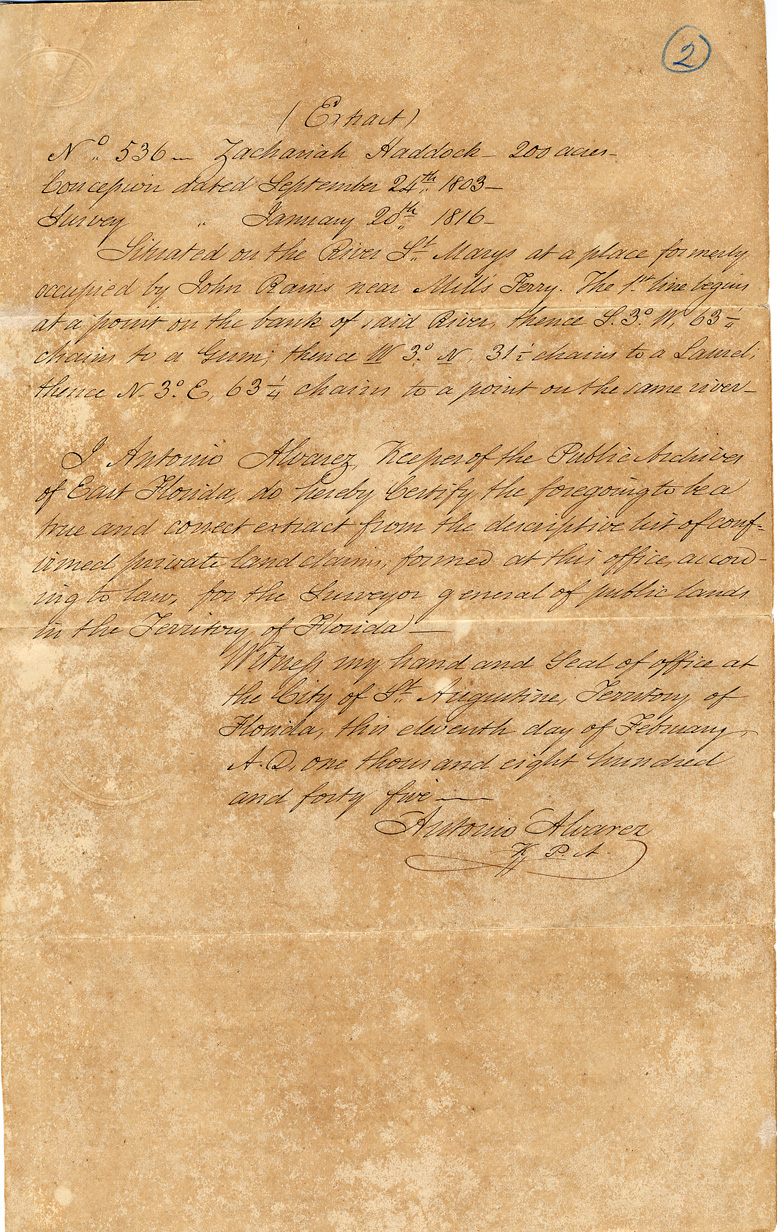 2
(Extract)
No. 536 — Zachariah Haddock — 200 acres —
Concession dated September 24th 1803 —
Survey " January 20th 1816 —
Situated on the River St. Marys at a place formerly
occupied by John Rains near Mills Ferry. The 1st line begins
at a point on the bank of said River, thence S. 3° W, 63 1/4
chains to a Gum; thence W 3° N, 31 1/2 chains to a Laurel;
thence N. 3° E, 63 1/4 chains to a point on the same river —
I Antonio Alvarez, Keeper of the Public Archives
of East Florida, do hereby Certify the foregoing to be a
true and correct extract from the descriptive list of conf-
irmed private land claims, formed at this office, accord-
ing to law, for the Surveyor general of public lands
in the Territory of Florida —
Witness my hand and Seal of office at
the City of St. Augustine, Territory of
Florida, this eleventh day of February
A.D. one thousand eight hundred
and forty five —
Antonio Alvarez
K. P. A.